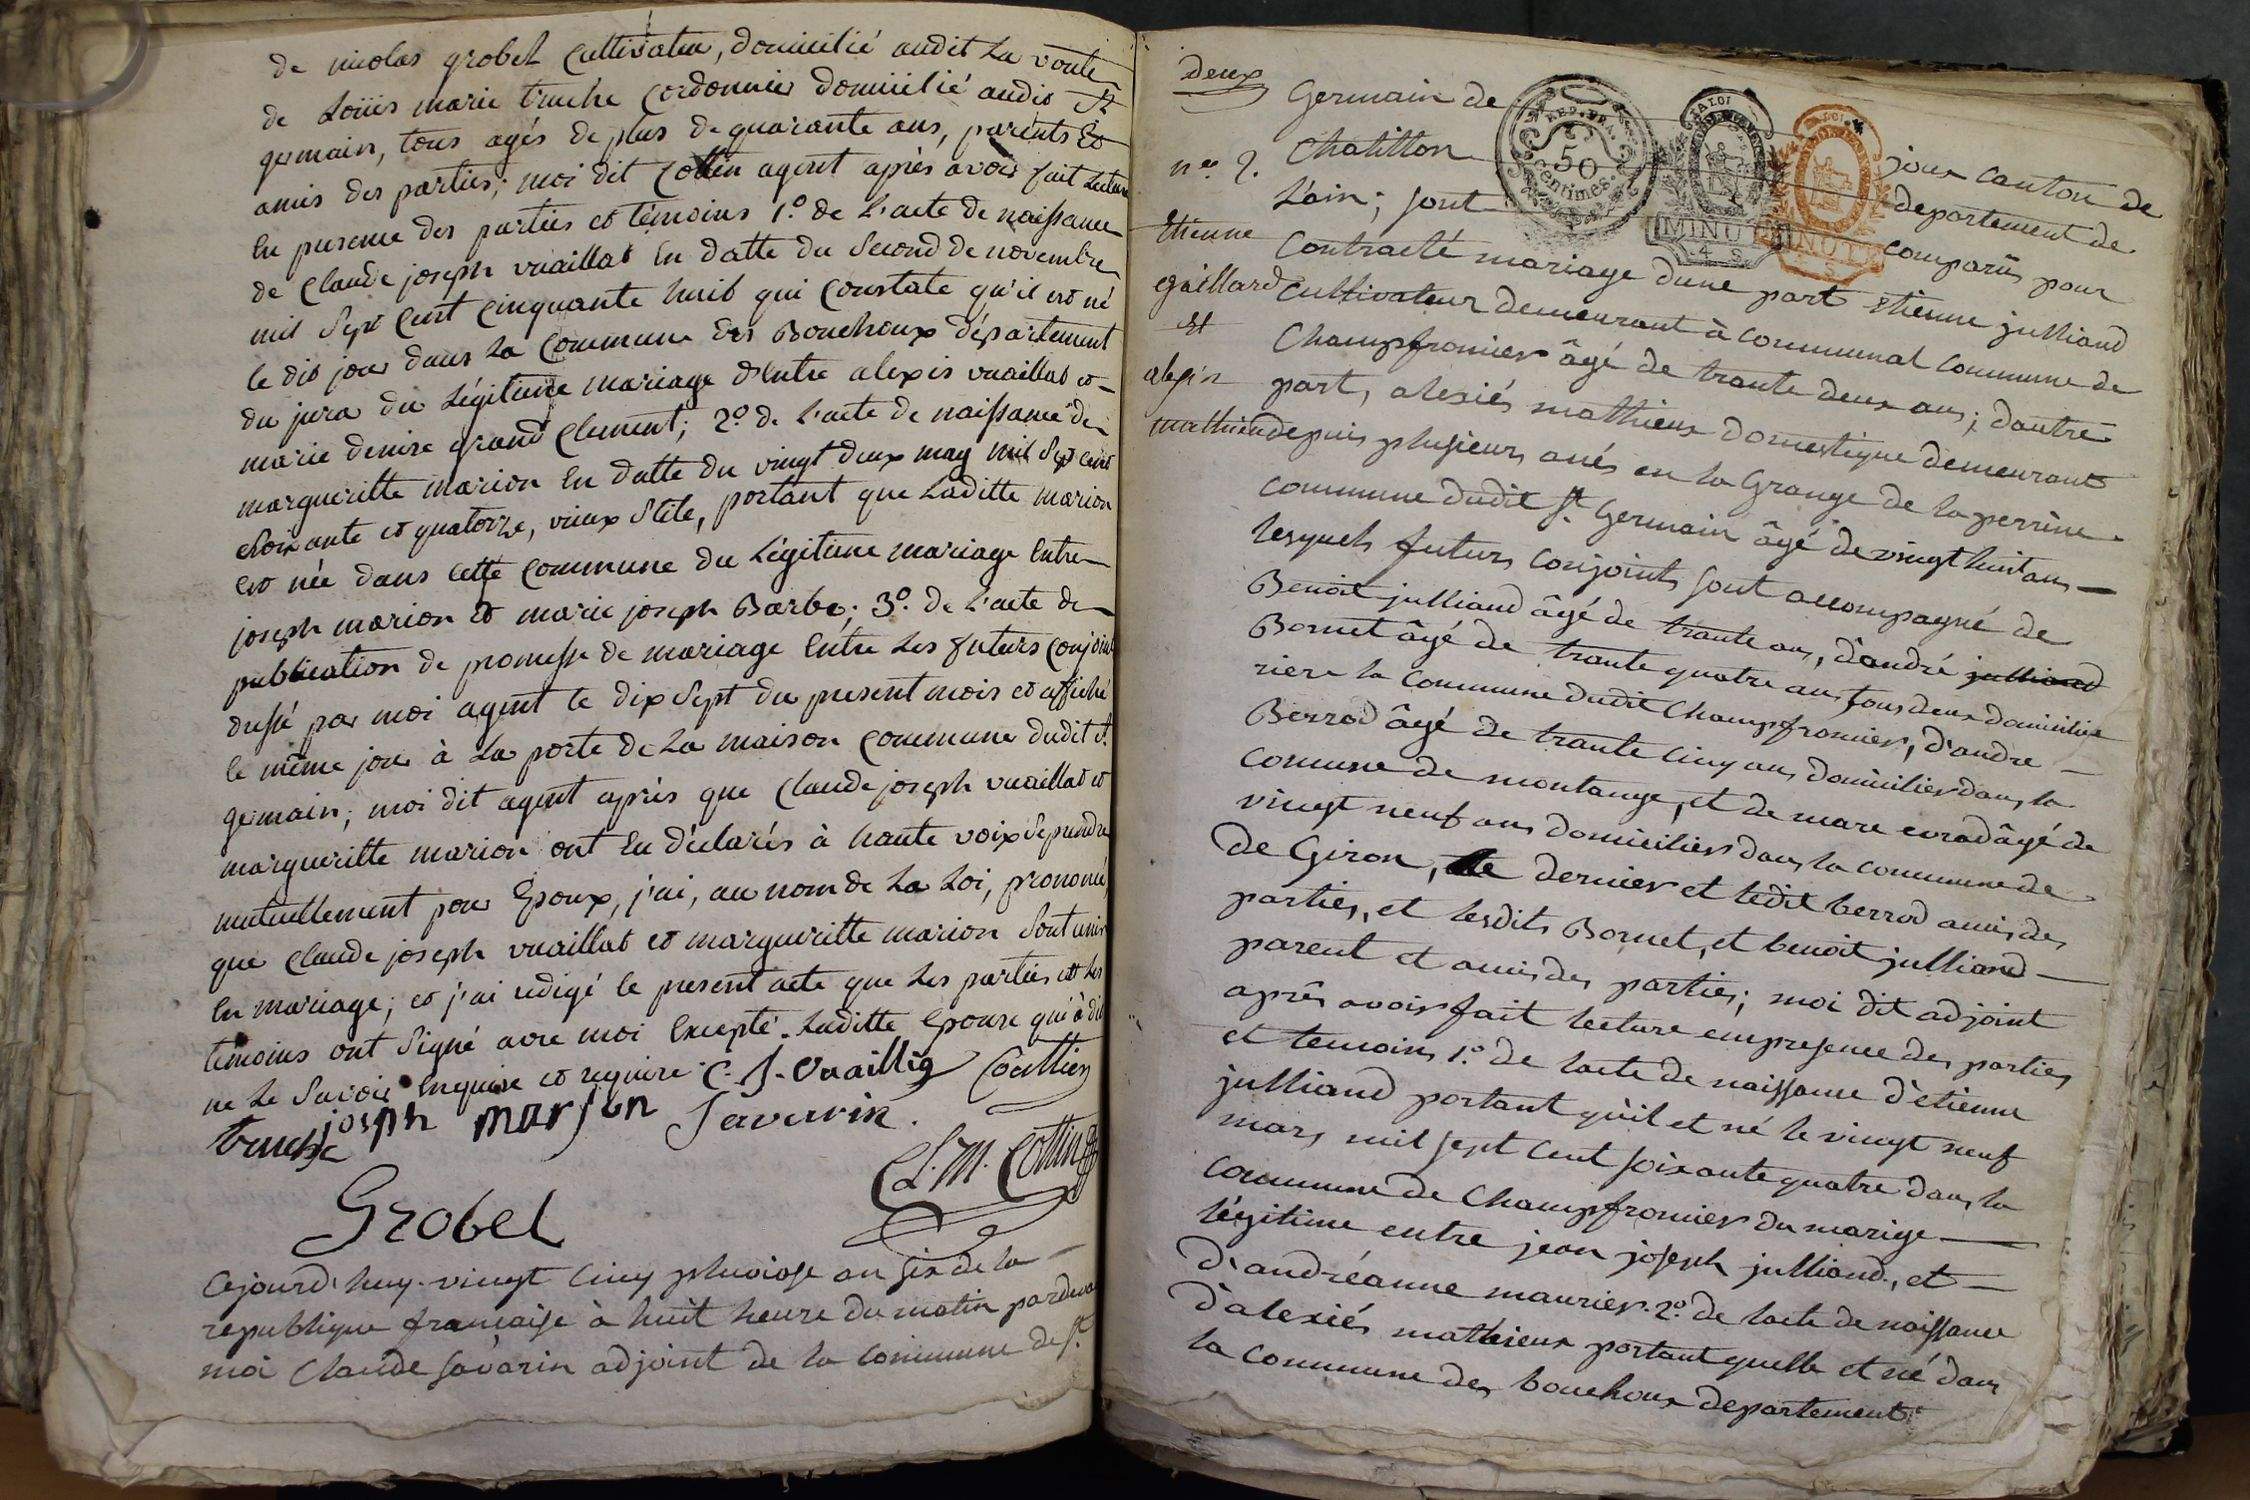 de nicolas grobel Cultivateur, domicilié audit La voute
de Loüis marie truche Cordonnier domicilié audit St
germain, tous agés de plus de quarante ans, parents Et
amis des parties; moi dit Cottin agent après avoir fait Lecture
En presence des parties et témoins 1.º de L'acte de naissance
de Claude joseph vuaillat En datte du Second de novembre
mil Sept Cent Cinquante huit qui Constate qu'il est né
le dit jour dans La Commune des Bouchoux département
du jura du Légitime mariage d'Entre alexis vuaillat et
marie denise grand Clement; 2.º de L'acte de naissance de
margueritte marion En datte du vingt deux may mil Sept cent
Soixante et quatorze, vieux Stile, portant que Laditte marion
est née dans cette Commune du Légitime mariage Entre
joseph marion et marie joseph Barbe; 3.º de L'acte de
publication de promesse de mariage Entre Les futurs Conjoints
dressé par moi agent le dix Sept du present mois et affiché
le même jour à La porte de La maison Commune dudit St.
germain; moi dit agent après que Claude joseph vuaillat et
margueritte marion ont Eu déclarés à haute voix Se prendre
mutuellement pour Epoux, j'ai, au nom de La Loi, prononcé,
que Claude joseph vuaillat et margueritte marion Sont unis
En mariage; et j'ai redigé le present acte que Les parties et Les
temoins ont Signé avec moi Excepté Laditte Epouse qui à dit
ne Le Savoir Enquise et requise. C. J. Vuaillia Cottin
truche joseph marion Savarin.
Cl. M. Cottin agt
Grobel
Cejourd'huy vingt Cinq pluviose an six de la
republique francaise à huit heure du matin pardevant
moi Claude Savarin adjoint de la Commune de St.
deux
Germain de jour canton de
Chatillon departement de
n.º 2. L'ain; sont comparus pour
Etienne Contracté mariage dune part etienne julliand
gaillard Cultivateur demeurant à communal commune de
Et Champfromier âgé de trante deux ans; dautre
alexis part, alexiés mathieux domestique demeurant
mathieu depuis plusieurs anés en la Grange de la perrine
commune dudit St. Germain âgé de vingt huit ans
lesquels futurs conjoints sont accompagné de
Benoit julliand âgé de trante ans, d'andré julliand
Bornet âgé de trante quatre ans tous deux domicilies
riere la Commune dudit Champfromier, d'andre
Berrod âgé de trante Cinq ans domicilier dans la
comune de montange, et de marc evrad âgé de
vingt neuf ans domicilier dans la commune de
de Giron, le dernier et ledit berrod amis des
parties, et lesdits Bornet, et benoit julliand
parent et amis des parties; moi dit adjoint
après avoir fait lecture empresence des parties
et temoins 1.º de lacte de naissance d'etienne
julliand portant qu'il et né le vingt neuf
mars mil sept cent soixante quatre dans la
commune de Champfromier du marige
légitime entre jean joseph julliand, et
d'andréanne maurier. 2.º de lacte de naissance
d'alexiés mathieux portant quelle et né dans
la commune des bouchoux departement
REP. FRA.
50
centimes.
LA LOI
MINUTE
4 S
LA LOI
MINUTE